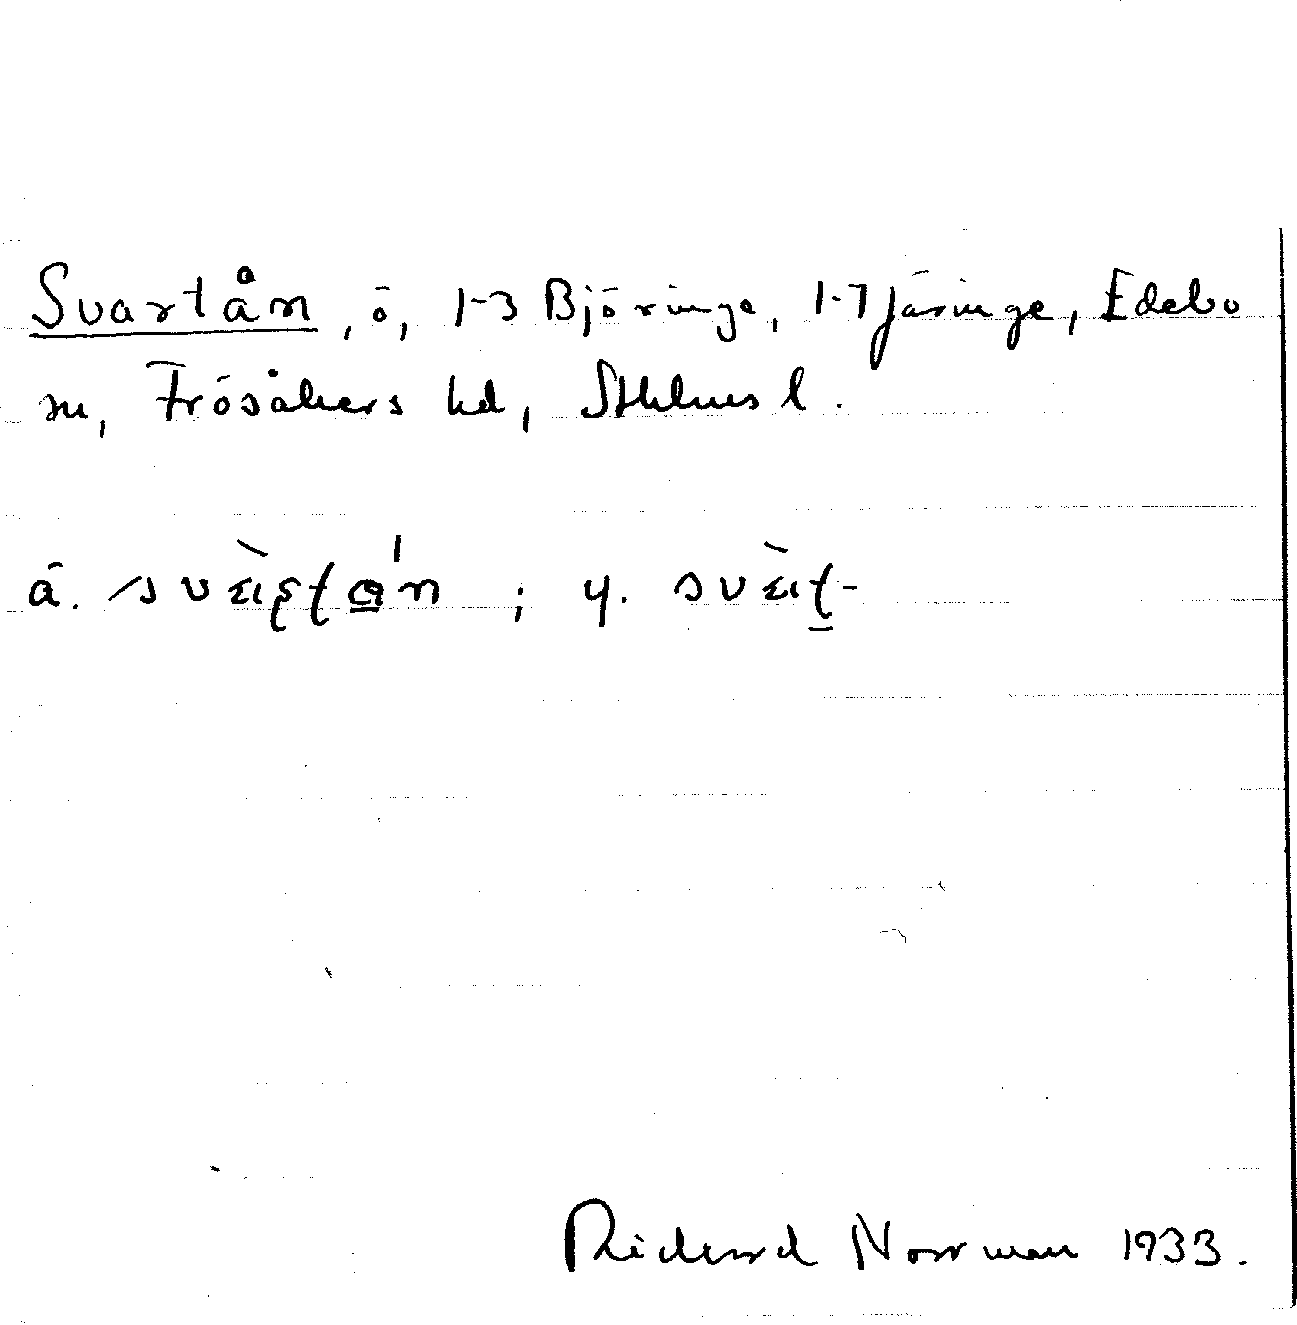 Svartån, ö, 1-3 Björinge, 1-7 Jäsinge, Edebo
sn, Frösåkers hd, Sthlms l.
ä. ; y.
Rickard Norrman 1933.